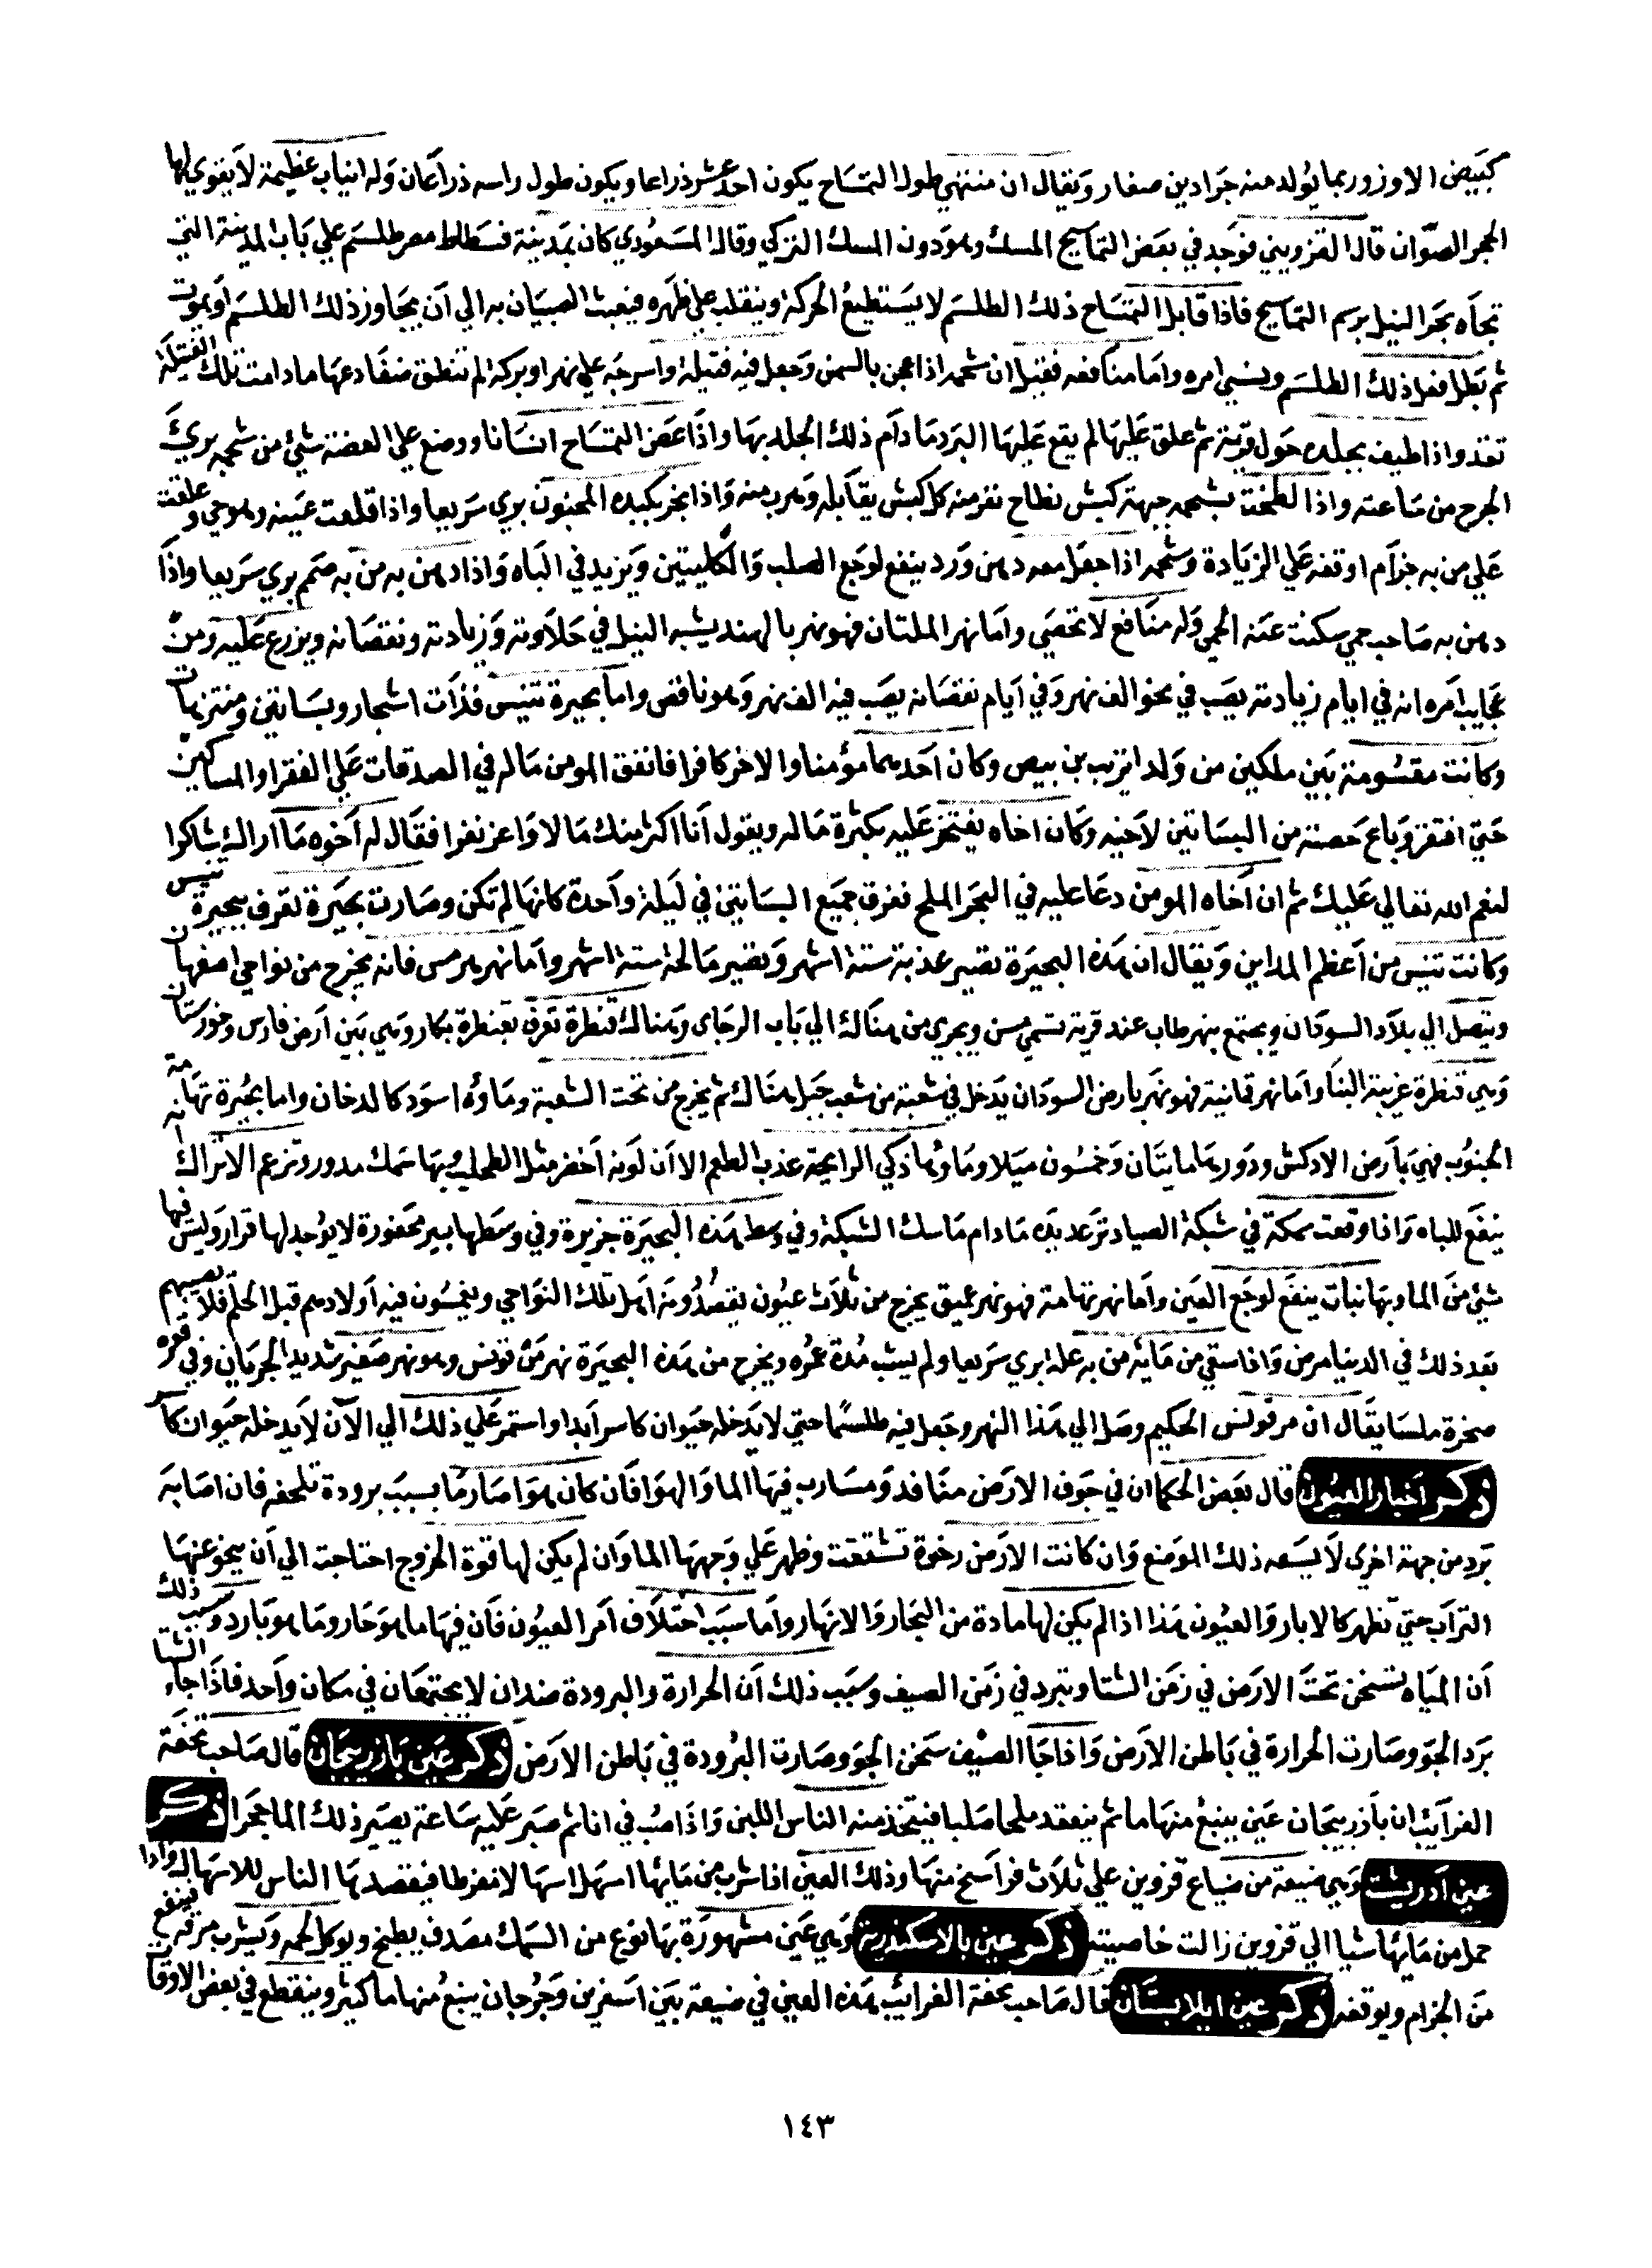 كبيض الاوز وربما يولد منه جرادين صغار ويقال ان منتهي طول التمساح يكون احد عشر ذراعا ويكون طول راسه ذراعان وله انياب عظيمة لا يقوي لها
الحجر الصوان قال القزويني فوجد في بعض التماسيح المسك وهو دون المسك التركي وقال المسعودي كان بمدينة فسطاط مصر طلسم علي باب المدينة التي
تجاه بحر النيل برسم التماسيح فاذا قابل التمساح ذلك الطلسم لا يستطيع الحركة وينقلب علي ظهره فيعبث الصبيان به الي ان يجاوز ذلك الطلسم او يموت
ثم بطل فعل ذلك الطلسم ونسي امره واما منافعه فقيل ان شحمه اذا عجن بالسمن وجعل فيه فتيلة واسرجه علي نهر او بركة لم تنطق ضفادعها ما دامت تلك الفتيلة
تقد واذا طيف بجلده حول قرية ثم علق عليها لم يقع عليها البرد ما دام ذلك الجلد بها واذا عض التمساح انسانا ووضع علي العضة شيئ من شحمه بريئ
الجرح من ساعته واذا لطخت بشحمه جبهة كبش نطاح نفر منه كل كبش يقابله وهرب منه واذا بخر بكبده المجنون بري سريعا واذا قلعت عينه وهو حي وعلقت
علي من به جزام اوقفه علي الزيادة وشحمه اذا جعل معه دهن ورد ينفع لوجع الصلب والكليتين ويزيد في الباه واذا دهن به من به صمم بري سريعا واذا
دهن به صاحب حمي سكنت عنه الحمي وله منافع لا تحصي واما نهر الملتان فهو نهر بالهند يشبه النيل في حلاوته وزيادته ونقصانه ويزرع عليه ومن
عجايب امره انه في ايام زيادته يصب في نحو الف نهر وفي ايام نقصانه يصب فيه الف نهر وهو ناقص واما بحيرة تنيس فذات اشجار وبساتين ومنتزهات
وكانت مقسومة بين ملكين من ولد اتريب بن بيص وكان احدهما مؤمنا والاخر كافرا فانفق المومن ماله في الصدقات علي الفقرا والمساكين
حتي افتقر وباع حصته من البساتين لاخيه وكان اخاه يفتخر عليه بكثرة ماله ويقول انا اكثر منك مالا واعز نفرا فقال له اخوه ما اراك شاكرا
لنعم الله تعالي عليك ثم ان اخاه المومن دعا عليه في البحر الملح فغرق جميع البساتين في ليلة واحدة كانها لم تكن وصارت بحيرة تعرف ببحيرة تنيس
وكانت تنيس من اعظم المداين ويقال ان هذه البحيرة تصير عذبة ستة اشهر وتصير مالحة ستة اشهر واما نهر هرمس فانه يخرج من نواحي اصفهان
ويتصل الي بلاد السودان ويجتمع بنهر طاب عند قرية تسمي مسن ويجري من هناك الي باب الرجاى وهناك قنطرة تعرف بقنطرة بكار وهي بين ارض فارس وخورستان
وهي قنطرة غريبة البنا واما نهر تمانية فهو نهر بارض السودان يدخل في شعبة من شعب جبل هناك ثم يخرج من تحت الشعبة وماؤه اسود كالدخان واما بحيرة تهامة
الجنوب فهي بارض الادكش ودورها مايتان وخمسون ميلا وماؤها ذكي الرايحة عذب الطعم الا ان لونه اخضر مثل الطحلب وبها سمك مدور وتزعم الاتراك انه
ينفع للباه واذا وقعت سمكة في شبكة الصياد ترعد يده ما دام ماسك الشبكة وفي وسط هذه البحيرة جزيرة وفي وسطها بير محفورة لا يوجد لها قرار وليس فيها
شيئ من الما وبها نبات ينفع لوجع العين واما نهر تهامة فهو نهر عميق يخرج من ثلاث عيون يقصدونه اهل تلك النواحي ويغمسون فيه اولادهم قبل الحلم فلا يصيبهم
بعد ذلك في الدنيا مرض واذا سقي من مائه من به علة ابري سريعا ولم يشب مدة عمره ويخرج من هذه البحيرة نهر من تونس وهو نهر صغير شديد الجريان وفي قعره
صخرة ملسا يقال ان مرقونس الحكيم وصل الي هذا النهر وجعل فيه طلسما حتي لا يدخله حيوان كاسر ابدا واستمر علي ذلك الي الآن لا يدخله حيوان كاسر
ذكر اخبار العيون قال بعض الحكما ان في جوف الارض منافد ومسارب فيها الما والهوا فان كان هوا صار ما بسبب برودة تلحقه فان اصابه
برد من جهة اخرى لا يسعه ذلك الموضع وان كانت الارض رخوة تشققت وظهر علي وجهها الما وان لم يكن لها قوة الخروج احتاجت الي ان ينحو عنها
التراب حتي تظهر كالابار والعيون هذا اذا لم يكن لها مادة من البحار والانهار واما سبب اختلاف امر العيون فان فيها ما هو حار وما هو بارد وسبب ذلك
ان المياه تسخن تحت الارض في زمن الشتا وتبرد في زمن الصيف وسبب ذلك ان الحرارة والبرودة ضدان لا يجتمعان في مكان واحد فاذا جاء الشتا
برد الجو وصارت الحرارة في باطن الارض واذا جا الصيف سخن الجو وصارت البرودة في باطن الارض ذكر عين باذربيجان قال صاحب تحفة
الغرائب ان باذربيجان عين ينبع منها ما ثم ينعقد ملحا صلبا فيتخذ منه الناس اللبن واذا صب في انا ثم صبر عليه ساعة يصير ذلك الما حجرا ذكر
عين ادريشت وهي ضيعة من ضياع قزوين علي ثلاث فراسخ منها وذلك العين اذا شرب من مائها اسهل اسهالا مفرطا فيقصدها الناس للاسهال واذا
حمل من مائها شيا الي قزوين زالت خاصيته ذكر عين بالاسكندرية وهي عين مشهورة بها نوع من السمك مصدف يطبخ ويوكل لحمه ويشرب مرقه فينفع
من الجزام ويوقفه ذكر عين ايلابستان قال صاحب تحفة الغرائب هذه العين في ضيعة بين اسفرين وجرجان ينبع منها ما كثير وينقطع في بعض الاوقا
١٤٣